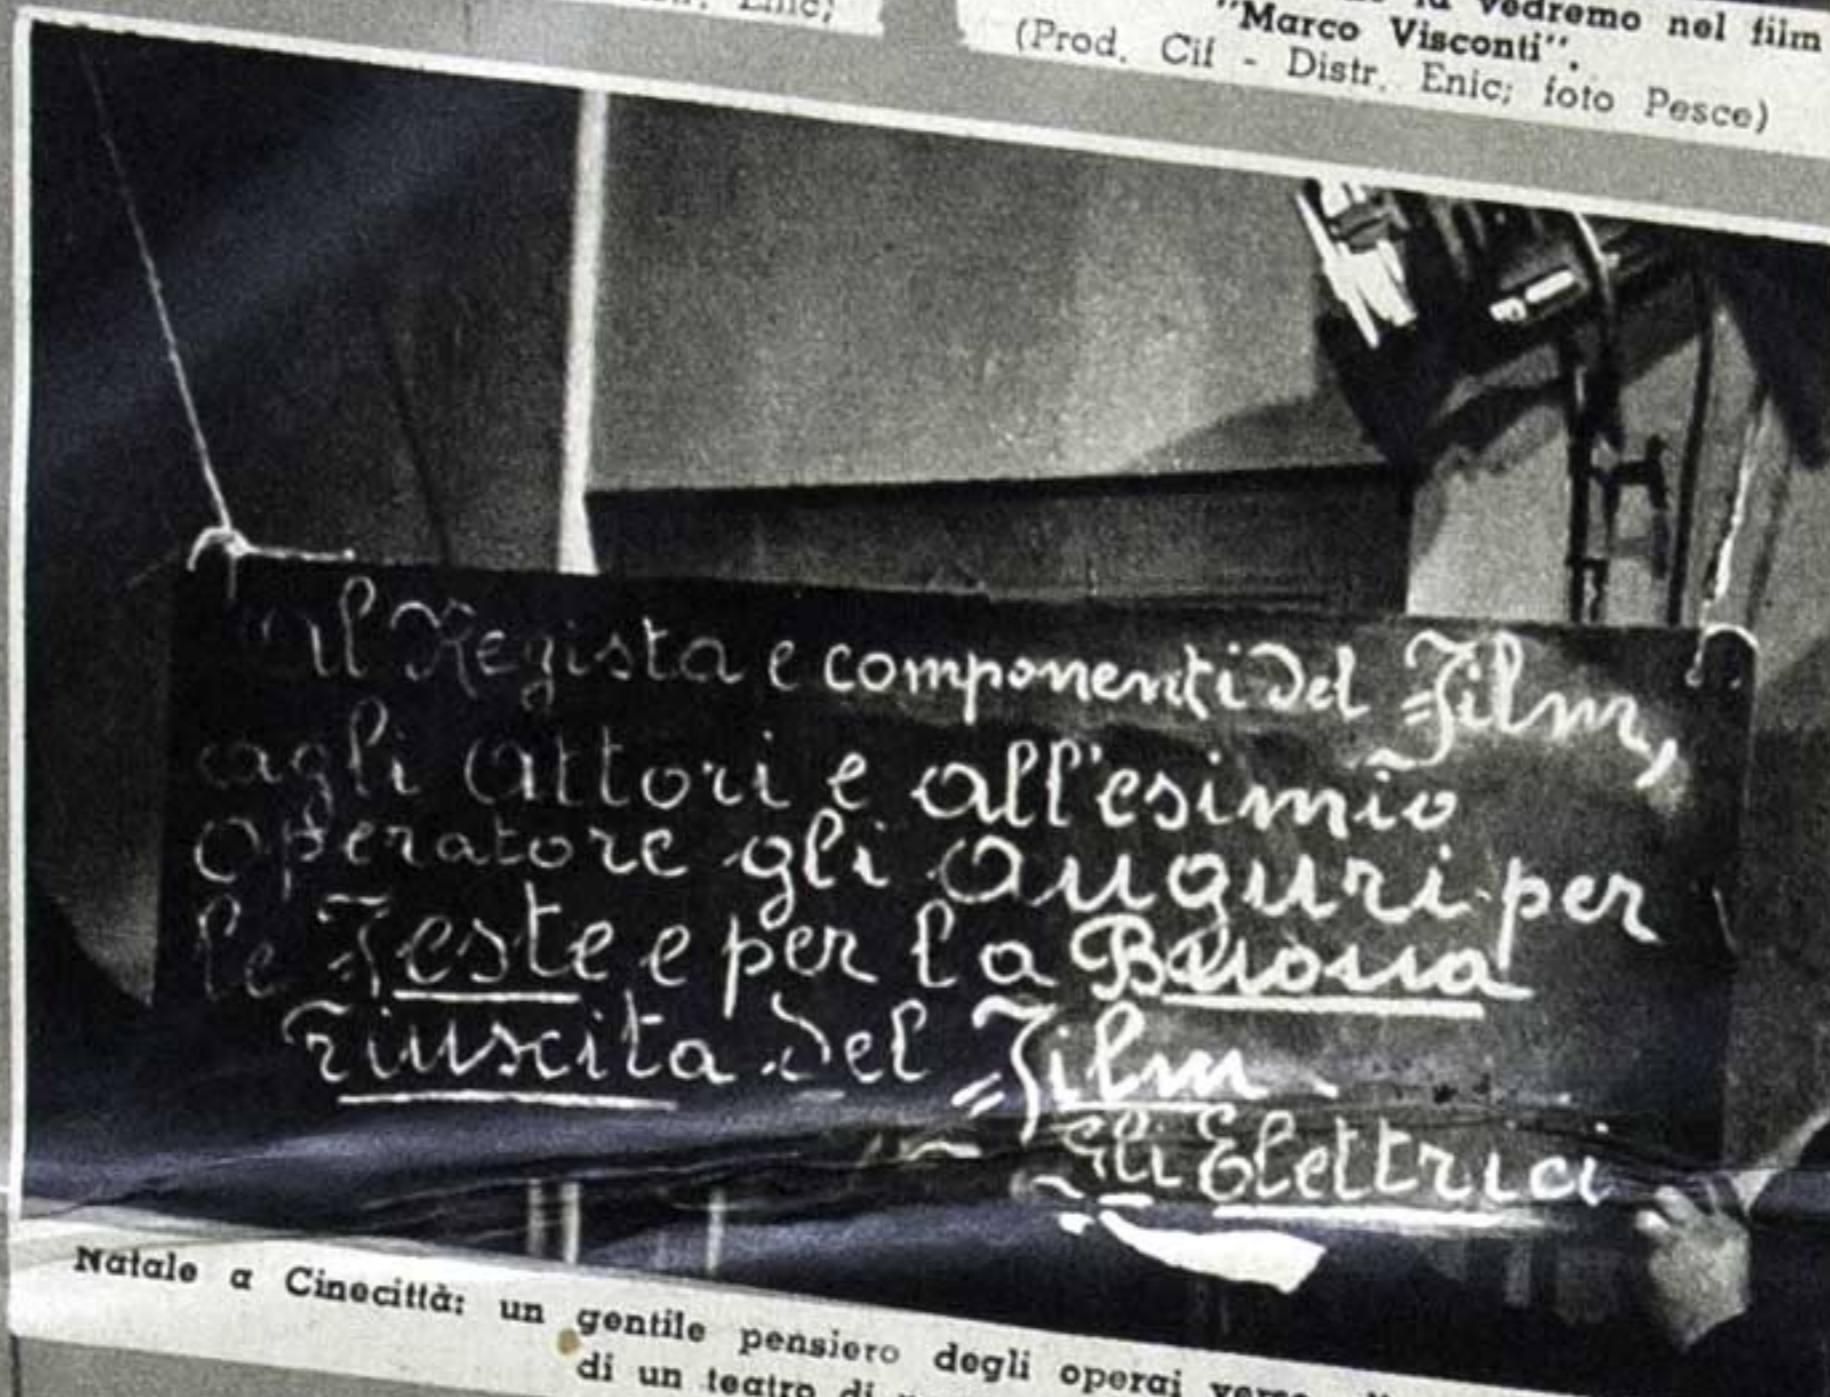 vedremo nel film
"Marco Visconti".
(Prod. Cif - Distr. Enic; foto Pesce)
Al Regista e componenti del Film,
agli Attori e all'esimio
Operatore gli Auguri per
le Feste e per la Buona
riuscita del Film
Gli Elettrici
Natale a Cinecittà: un gentile pensiero degli operai
di un teatro di